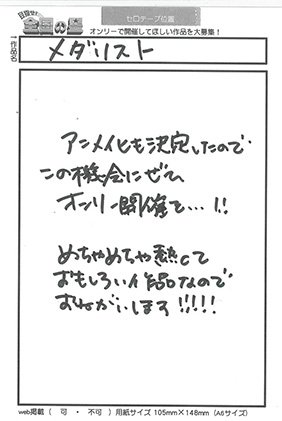 目指せ!
全国の島
セロテープ位置
オンリーで開催してほしい作品を大募集!
↑作品名
メダリスト
アニメイヒも決定したので
この機会にぜひ
オンリー開催を…!!
めちゃめちゃ熱くて
おもしろい作品なので
おねがいします!!!!!
web掲載( 可 ・ 不可 )用紙サイズ 105mm×148mm(A6サイズ)